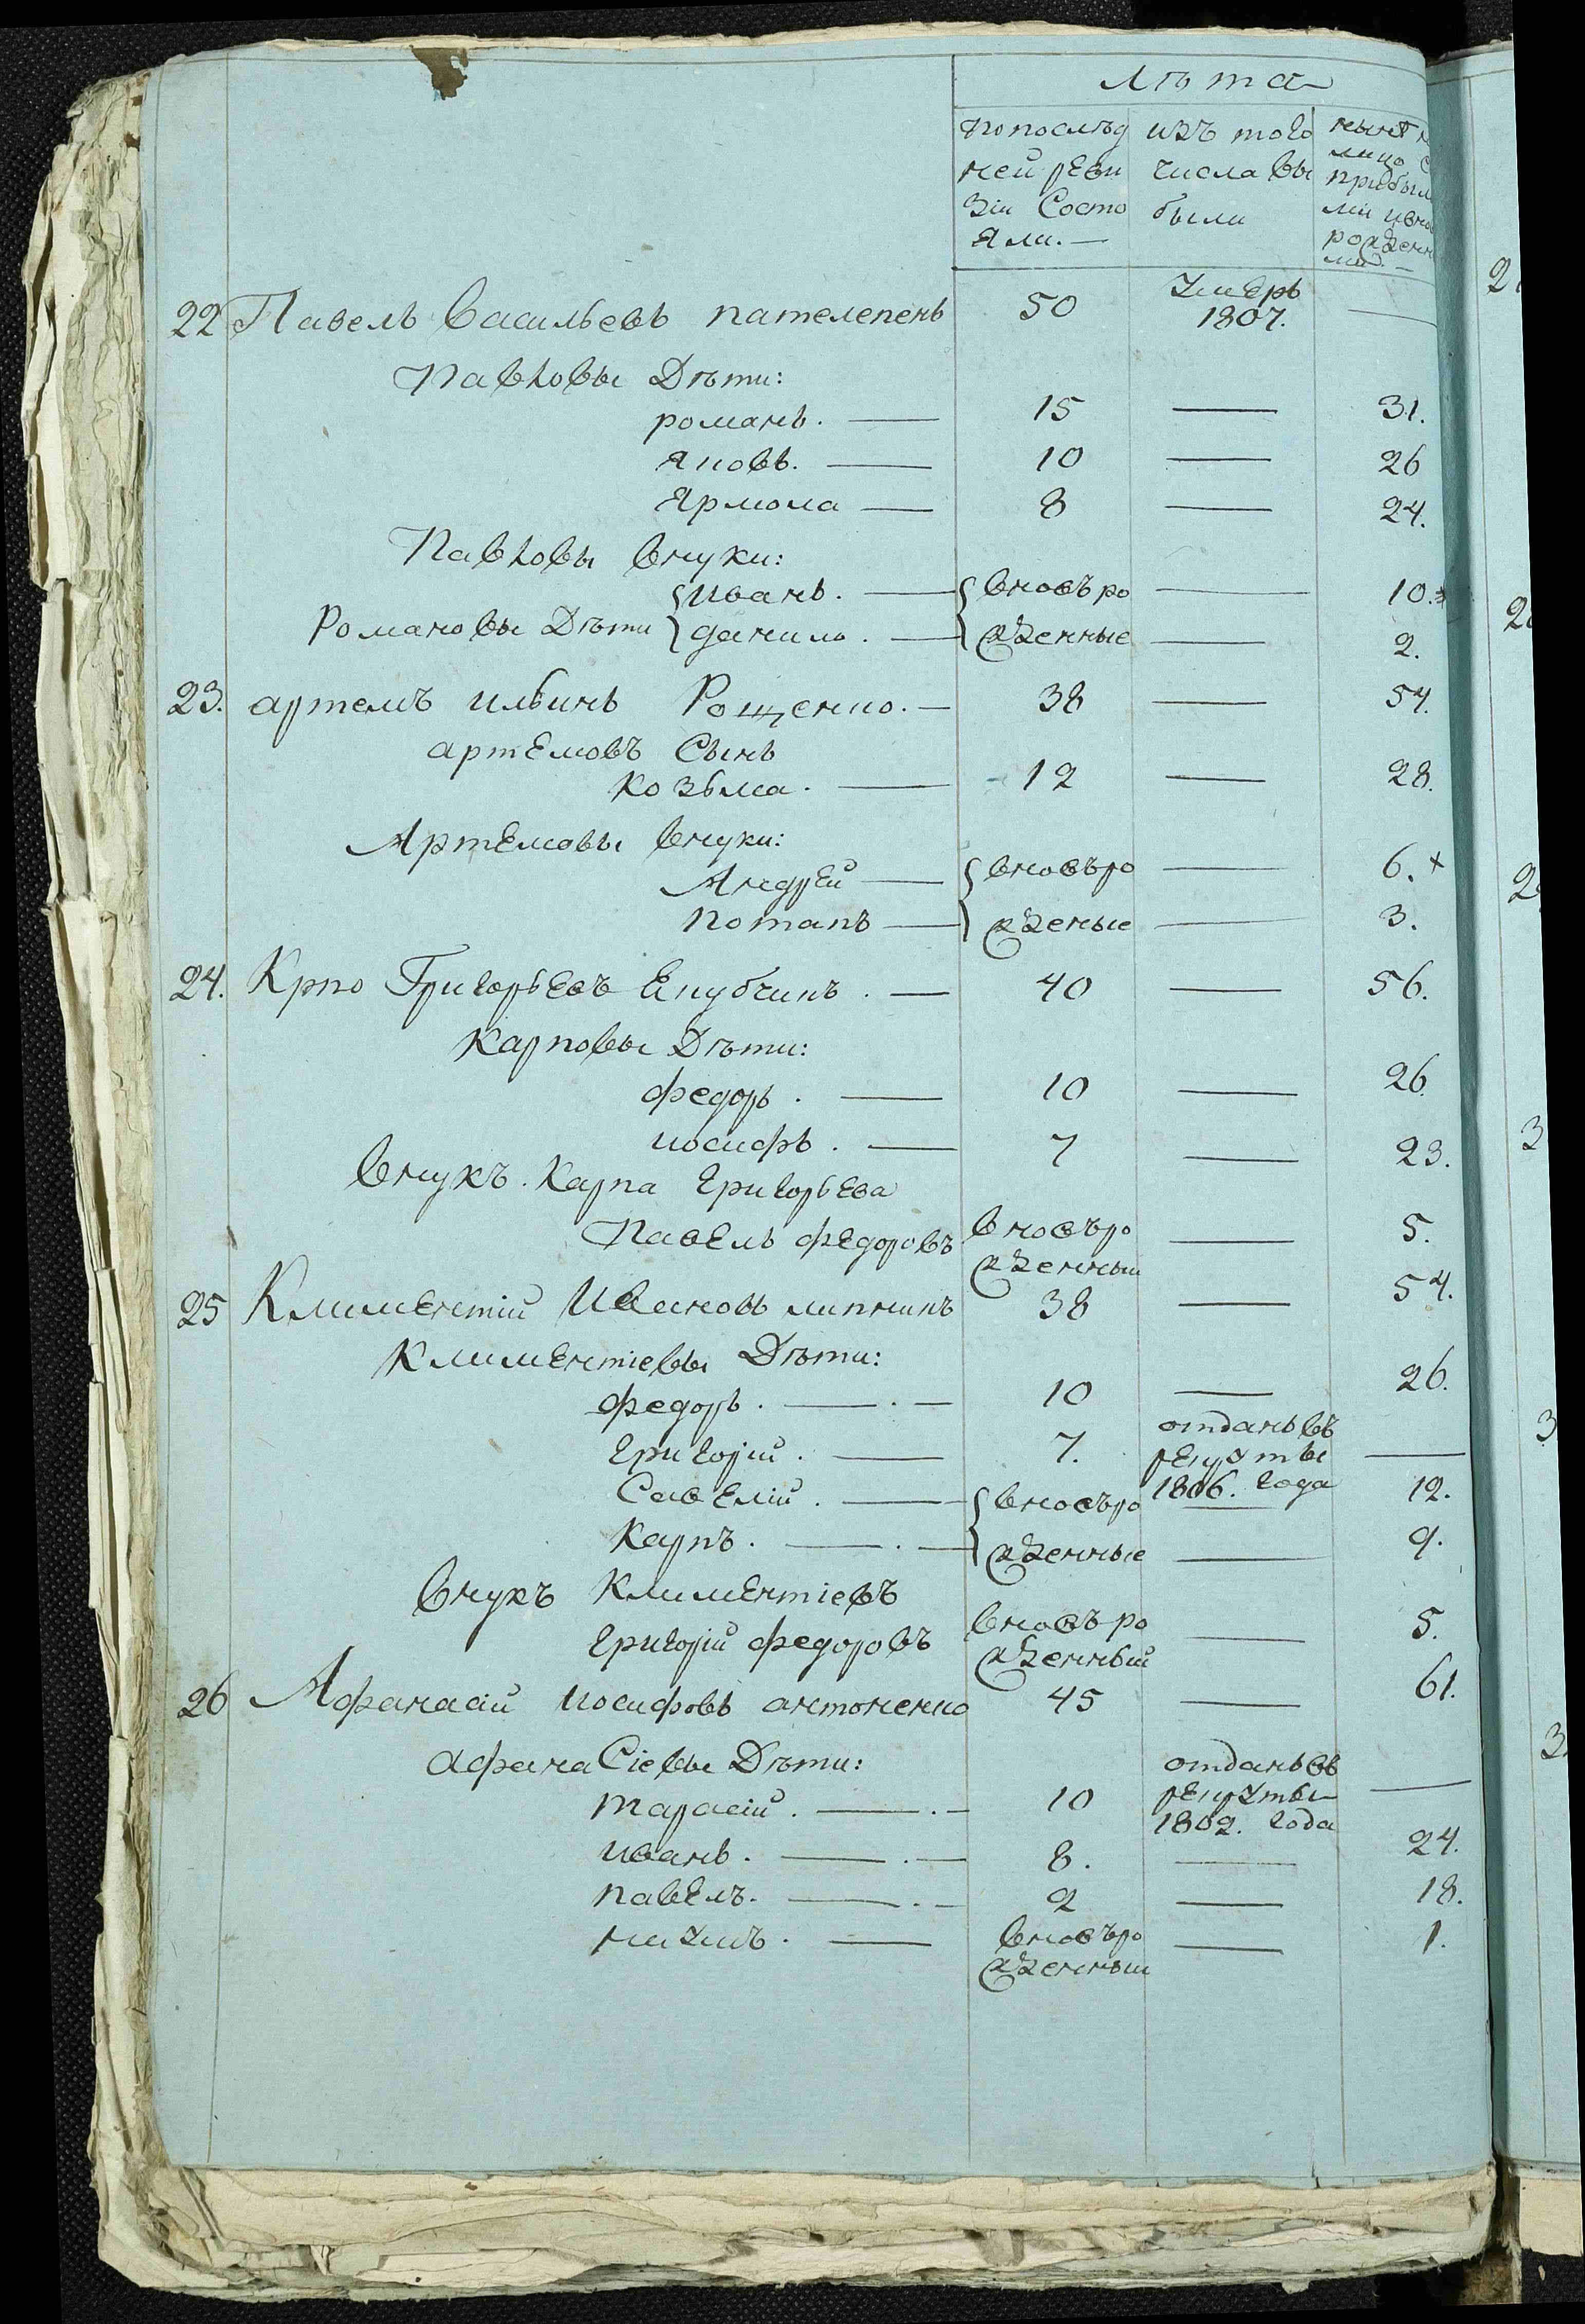 Лѣта
по послѣд изъ того нынѣ н
ней реви числа вы лицо с
зіи состо были прибыл
яли. — ми и вно
рожденн
ми. —
22 Павелъ Васильевъ пателепень 50 Умеръ 1807. —
Павловы Дѣти:
романъ. — 15 — 31.
Яковъ. — 10 — 26
Ярмола — 8 — 24.
Павловы внуки:
Романовы Дѣти { иванъ. — { вновъ ро — 10.
} данило. — } жденные — 2.
23. артемъ ильинъ Рощенко. — 38 — 54.
артемовъ Сынъ
козьма. — 12 — 28.
Артемовы внуки:
Андрей — { вновъ ро — 6. +
потапъ — } жденые — 3.
24. Крпо Григорьевъ . — 40 — 56.
карповы Дѣти:
федоръ . — 10 — 26.
иосифъ . — 7 — 23.
внукъ. карпа григорьева
павелъ федоровъ вновъ ро — 5.
жденный
25 Климентій Ивановъ липнинъ 38 — 54.
климентіевы Дѣти:
федоръ. — . — 10 — 26.
григорій. — 7. отданъ въ рекруты 1806. года —
Савелій . — { вновъ ро — 12.
карпъ. — . — } жденные — 9.
внукъ климентіевъ
григорій федоровъ вновъ ро — 5.
жденный
26 Афанасій иосифовъ антоненко 45 — 61.
афанаСіевы Дѣти:
тарасій. — . — 10 отданъ въ рекруты 1802. года —
иванъ. — . — 8. — 24.
павелъ. — . — 2 — 18.
наумъ. — вновъ ро — 1.
жденный